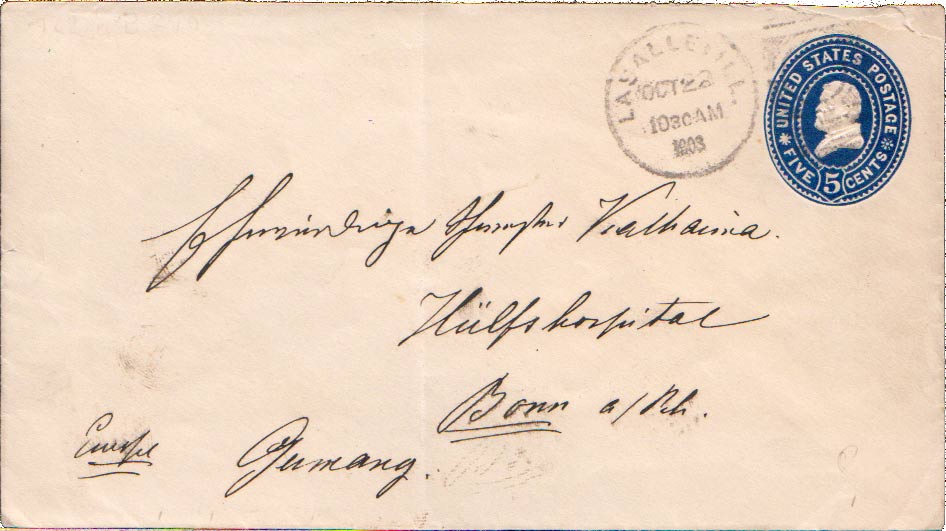 LASALLE ILL.
OCT 22
1030 AM
1903
UNITED STATES POSTAGE
FIVE 5 CENTS
Ehrwürdige Schwester
Hülfshospital
Bonn a/Rh.
Europe
Germany.